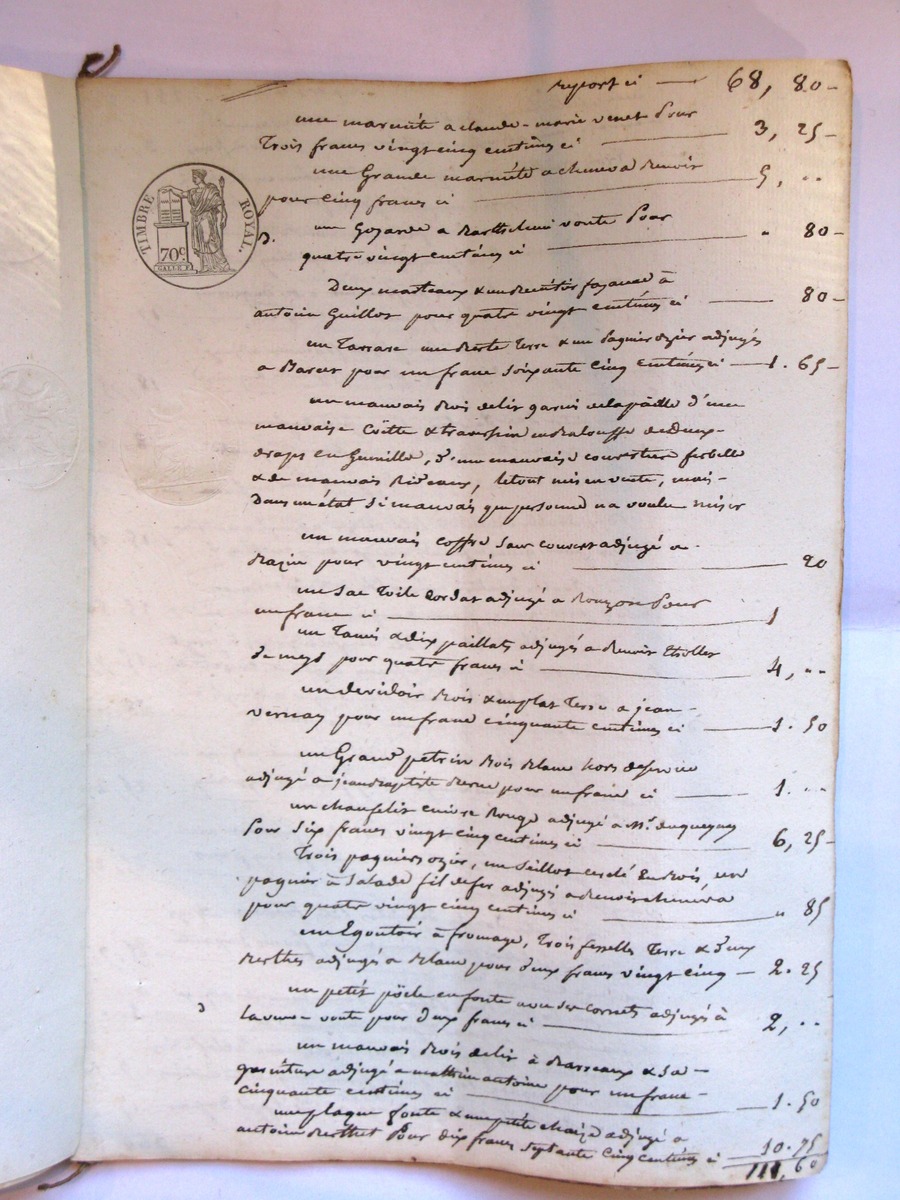 report ci 68, 80
une marmite a claude-marie venet pour
Trois francs vingt cinq centimes ci 3, 25
une Grande marmite a cheneva Benoir
pour cinq francs ci 5, ..
TIMBRE ROYAL.
70c
une Goyarde a Barthelmi voute pour
quatre vingt centimes ci " 80
Deux marteaux & un fayance à
antoin Guillot pour quatre vingt centimes ci 80
un Tarrare une Berte Terre & un pagnier ozier adjugés
a pour un franc soixante cinq centimes ci 1. 65
un mauvais Bois de lit garni de la paille d'une
mauvaise Coëtte & traversin en Balouffe de deux
draps en Guenille, d'une mauvaise couverture
& de mauvais Rideaux, le tout mis en vente, mais
Dans un état si mauvais que personne n'a voulu miser
un mauvais coffre sans couvert adjugé a
pour vingt centimes ci 20
un sac toile adjugé a pour
un franc ci 1
un Tamis & dix paillats adjugés a Benoir
pour quatre francs ci 4, ..
un devidoir Bois & un plat Terre a jean
vernay pour un franc cinquante centimes ci 1. 50
un Grand petrin Bois Blanc hors de service
adjugé a jean Baptiste pour un franc ci 1. ..
un chauffelit cuivre Rouge adjugé a Mr. duquegnay
pour six francs vingt cinq centimes ci 6, 25
Trois pagniers ozier, un seillot cerclé en Bois, un
pagnier à salade fil de fer adjugés a Benoir chéneva
pour quatre vingt cinq centimes ci " 85
un Egoutoir à fromage, Trois fesselles Terre & deux
Berthes adjugés a Blanc pour deux francs vingt cinq 2. 25
un petit pöele en fonte avec ses cornets adjugés à
voute pour deux francs ci 2, ..
un mauvais Bois de lit à Barreaux & sa
garniture adjugé a mathieu antoine pour un franc
cinquante centimes ci 1. 50
une plaque fonte & une petite chaize adjugé a
antoin Berthet pour dix francs septante cinq centimes ci 10. 75
111, 60